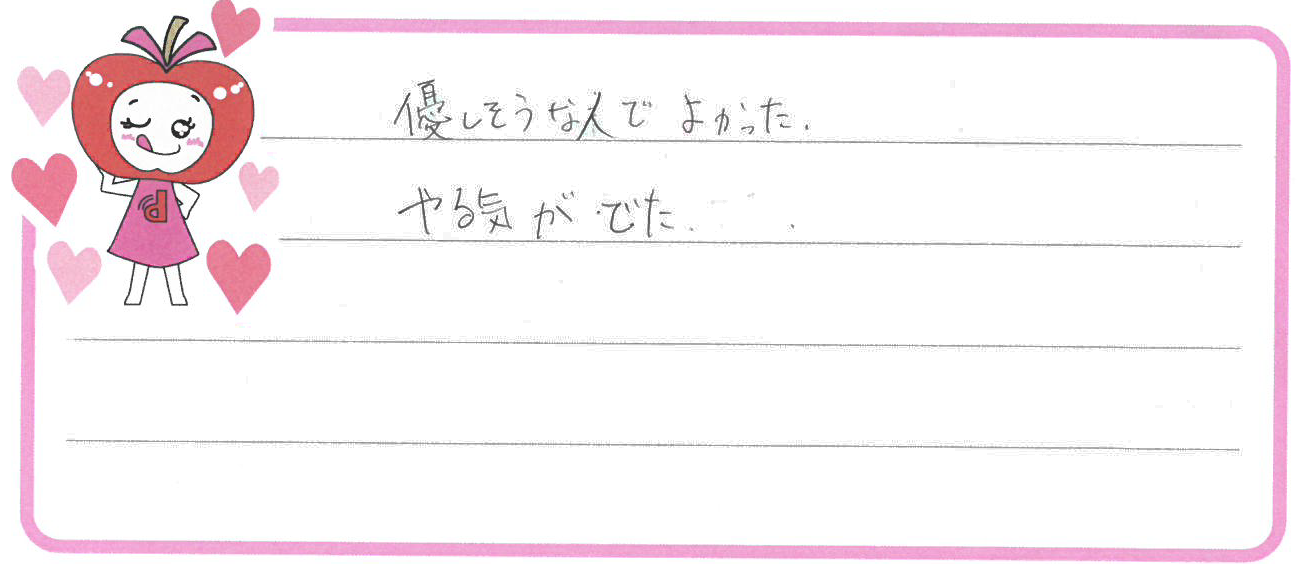 優しそうな人でよかった.
やる気がでた.